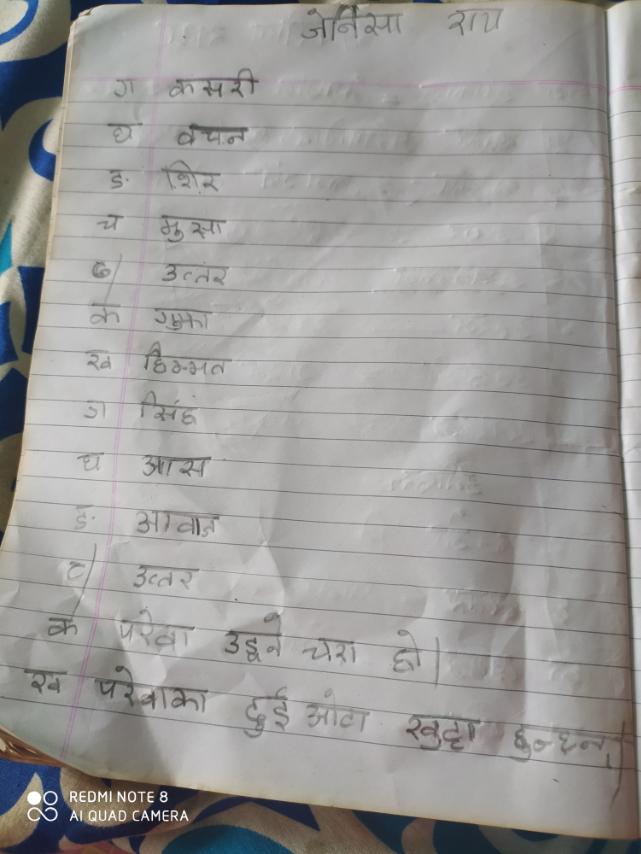 जेनिसा राय
ग कसरी
घ वचन
ङ. शिर
च मुसा
७/ उत्तर
क गुफा
ख हिम्मत
ग सिंह
घ आस
ङ. आवाज
८/ उत्तर
क परेवा उड्ने चरा हो।
ख परेवाका दुई ओटा खुट्टा हुन्छन्।
REDMI NOTE 8
AI QUAD CAMERA